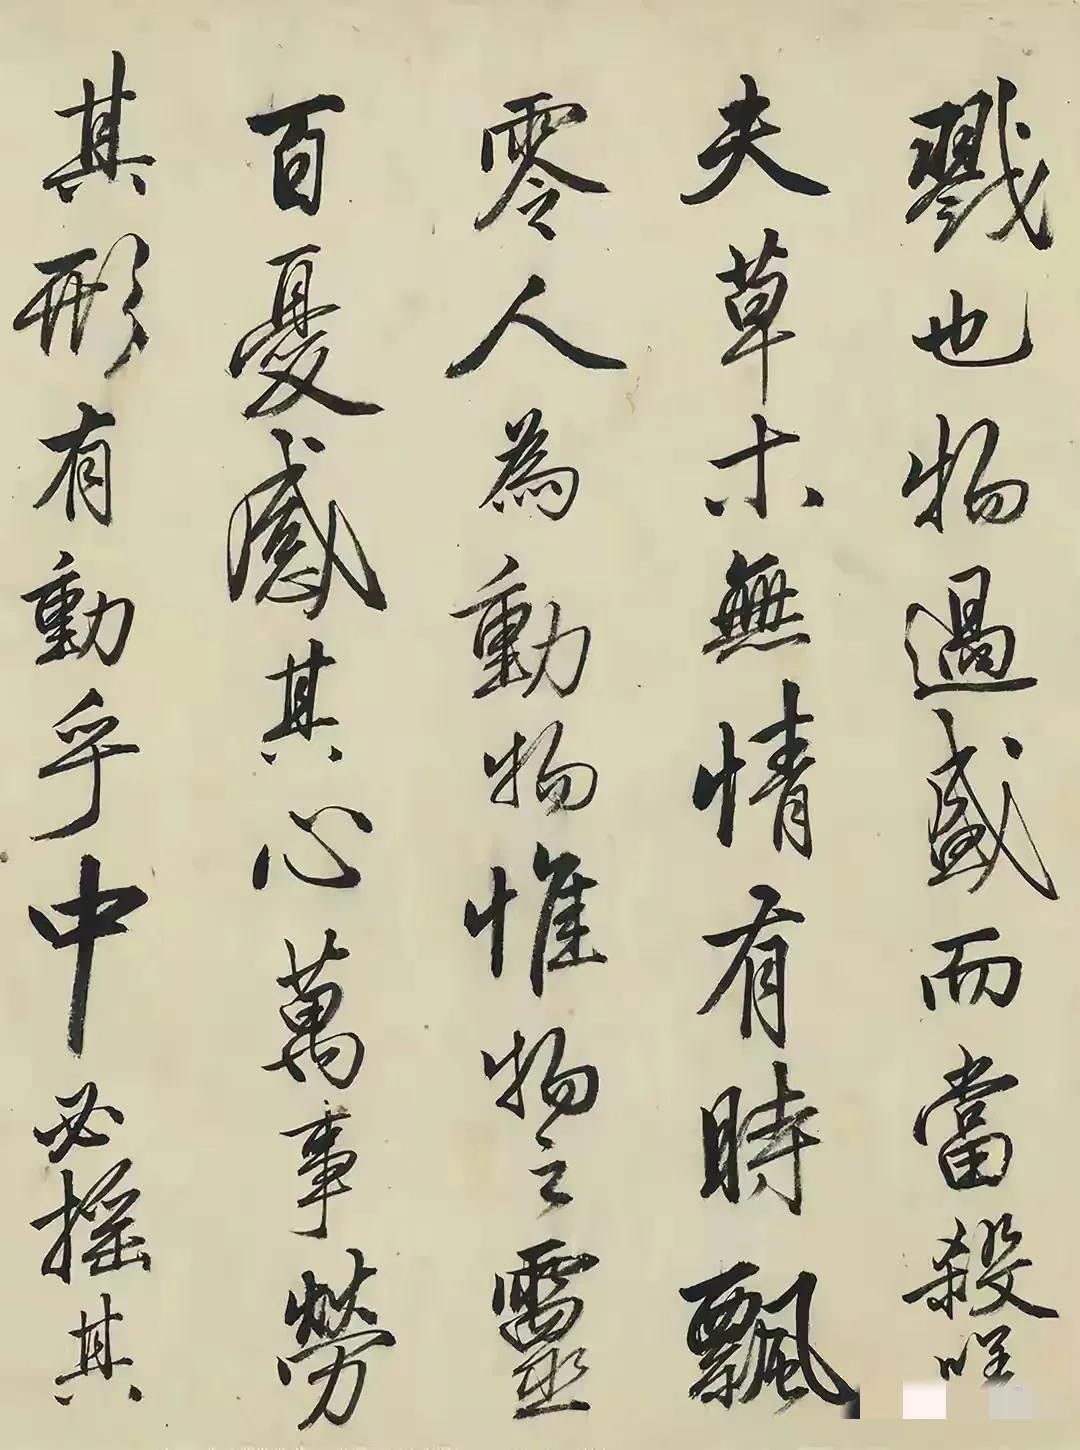 戮也物過盛而當殺嗟
夫草木無情有時飄
零人為動物惟物之靈
百憂感其心萬事勞
其形有動乎中必搖其